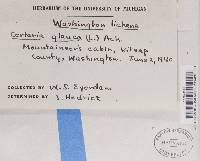 HERBARIUM OF THE UNIVERSITY OF MICHIGAN
Washington lichens
Cetraria glauca (L.) Ach.
Mountaineer's cabin, Kitsap
County, Washington. June 2, 1940
COLLECTED BY W. J. Eyerdam
DETERMINED BY J. Hedrick